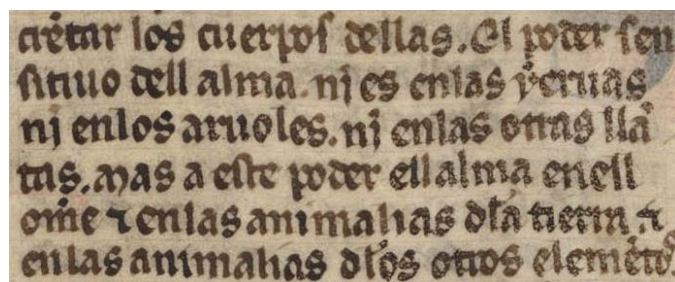 crẽtar los cuerpos dellas. El poder sen
sitiuo dell alma. nj es enlas yeruas
nj enlos aruoles. nj enlas otras llã
tas. mas a este poder ell alma enell
om̃e ⁊ enlas animalias dła tierra. ⁊
enlas animalias dłos otros elemẽtos.